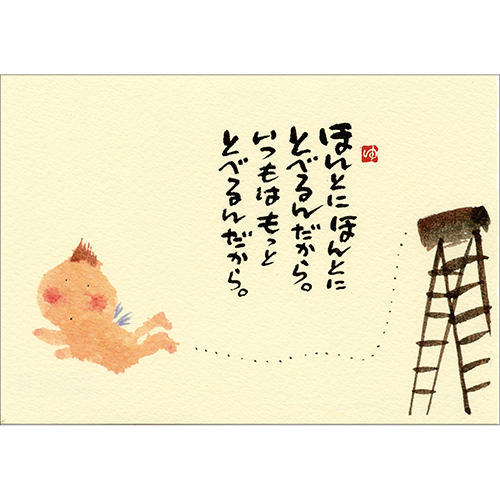 ほんとに ほんとに
とべるんだから。
いつもは もっと
とべるんだから。
ゆ